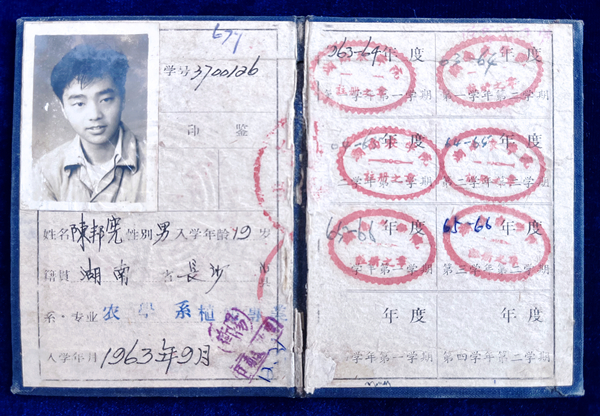 学号 3700126
印鉴
姓名 陳邦宪 性别 男 入学年龄 19 岁
籍贯 湖南 省 長沙 市县
系·专业 农学系植
入学年月 1963年9月
(衡阳)
63-64年度 63-64年度
第一学年第一学期 第一学年第二学期
64-65年度 64-65年度
第二学年第一学期 第二学年第二学期
65-66年度 65-66年度
学年第一学期 第三学年第二学期
年度 年度
学年第一学期 第四学年第二学期
注册之章
注册之章
注册之章
注册之章
注册之章
注册之章